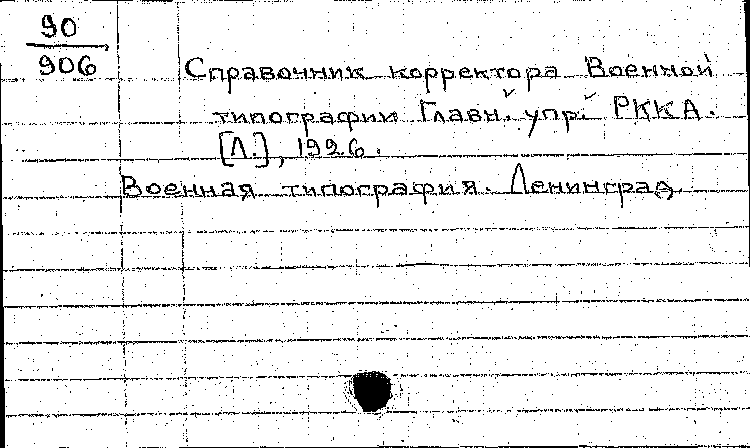 90
906
Справочник корректора Военной
типографии Главн. упр. РККА.
[Л.], 1926.
Военная типография. Ленинград.